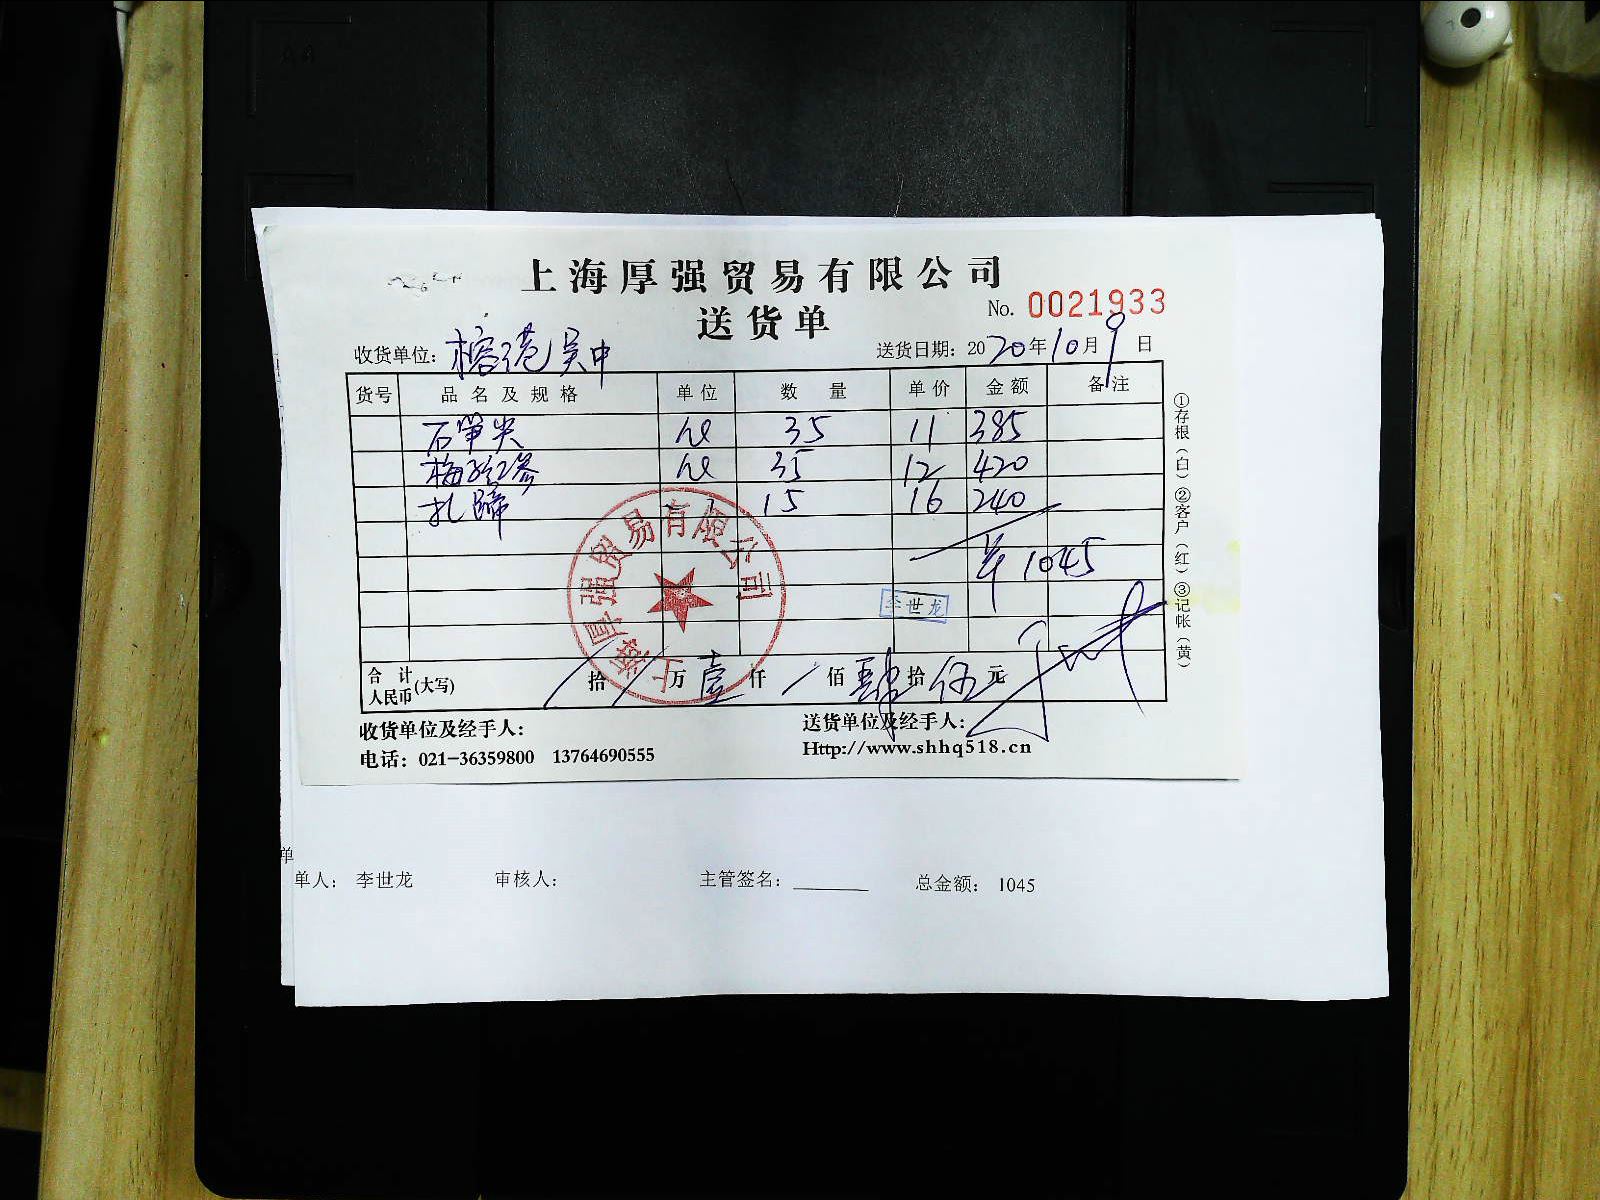 上海厚强贸易有限公司
送货单
No. 0021933
收货单位：榕港吴中
送货日期：2020年10月9日
货号 品名及规格 单位 数量 单价 金额 备注
石笋尖 35 11 385
梅 35 12 420
扎蹄 15 16 240
1045
李世龙
合计人民币(大写) 拾 万 壹 仟 佰 肆 拾 伍 元
收货单位及经手人：
送货单位及经手人：
电话：021-36359800 13764690555
Http://www.shhq518.cn
①存根(白)②客户(红)③记帐(黄)
上海厚强贸易有限公司
单
单人：李世龙 审核人： 主管签名：________ 总金额：1045